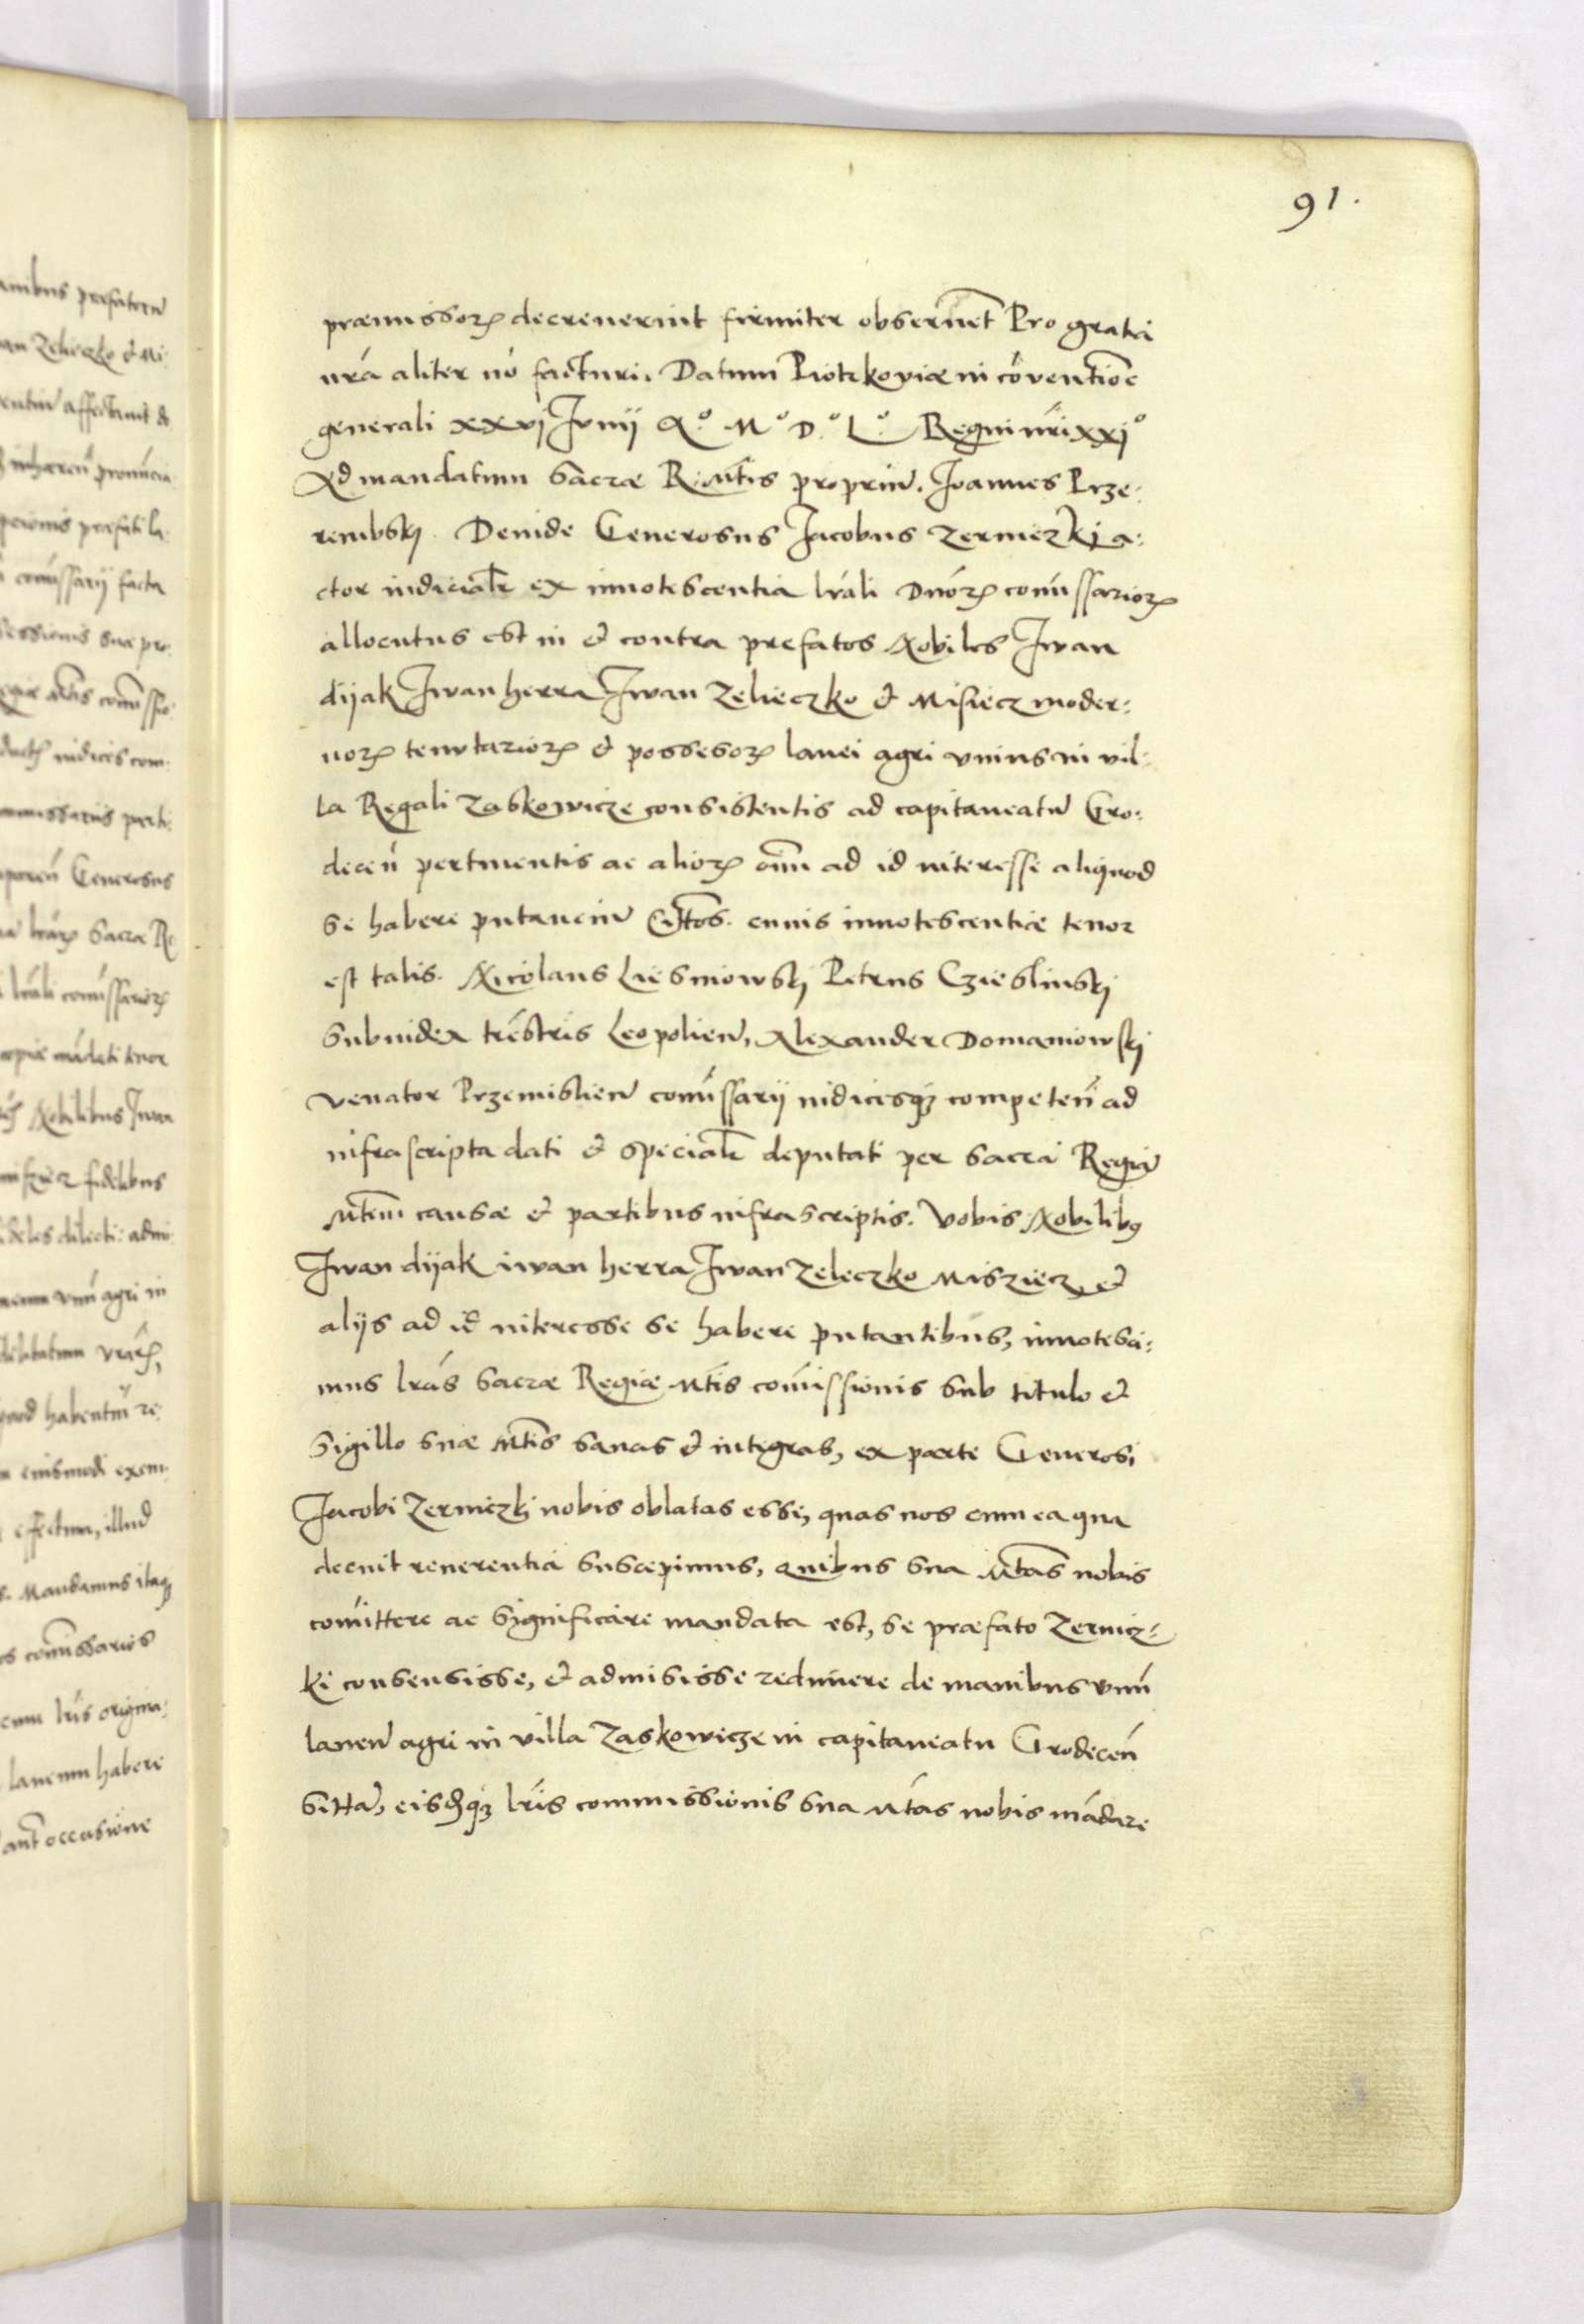 91.
præmissorꝝ decreuerint firmiter obseruēt Pro gratia
nrā aliter nō facturi. Datum Piotrkoviæ in cōventiōe
generali xxvj Junij A.º M.º D.º L.º Regni nrī xxjº
Ad mandatum Sacræ R: Mtis propriū. Joannes Prze:
rembskj. Deinde Generosus Jacobus Zerniczkj a:
ctor iudicialr ex innotescentia lrāli Dnorꝝ comissariorꝝ
allocutus est in et contra prefatos Nobiles Jwan
dijak Jwan herra Jwan Zelieczko et Misiecz moder:
norꝝ tenutariorꝝ et possesorꝝ lanei agri vnius in vil:
la Regali Zaskowicze consistentis ad capitaneatū Gro:
decen̄ pertinentis ac aliorꝝ oīm ad id interesse aliquod
se habere putaueīn Citatos. cuius innotescentiæ tenor
est talis. Nicolaus Liesniowskj Petrus Czieslinskj
Subiudex trēstris Leopolien̄, Alexander Domaniowskj
venator Przemislien̄ comissarij iudicesq₃ competen̄ ad
infrascripta dati et specialr deputati per Sacrā Regiā
Mtēm causæ et partibus infrascriptis. Vobis Nobilibꝰ
Jwan dijak iwan herra Jwan Zeleczko Misziecz et
alijs ad id interesse se habere putantibus, innotesci:
mus lrās Sacræ Regiæ Mtis comissionis sub titulo et
sigillo suæ Mtis sanas et integras, ex parte Generosi
Jacobi Zerniczkj nobis oblatas esse, quas nos cum ea qua
decuit reuerentia suscepimus, quibus sua Mtas nobis
comittere ac significare mandata est, se præfato Zernicz:
ki consensisse, et admisisse redimere de manibus vnū
laneū agri in villa Zaskowicze in capitaneatu Grodecen̄
sittā, eisdq₃ lrīs commissionis sua Mtas nobis mādare